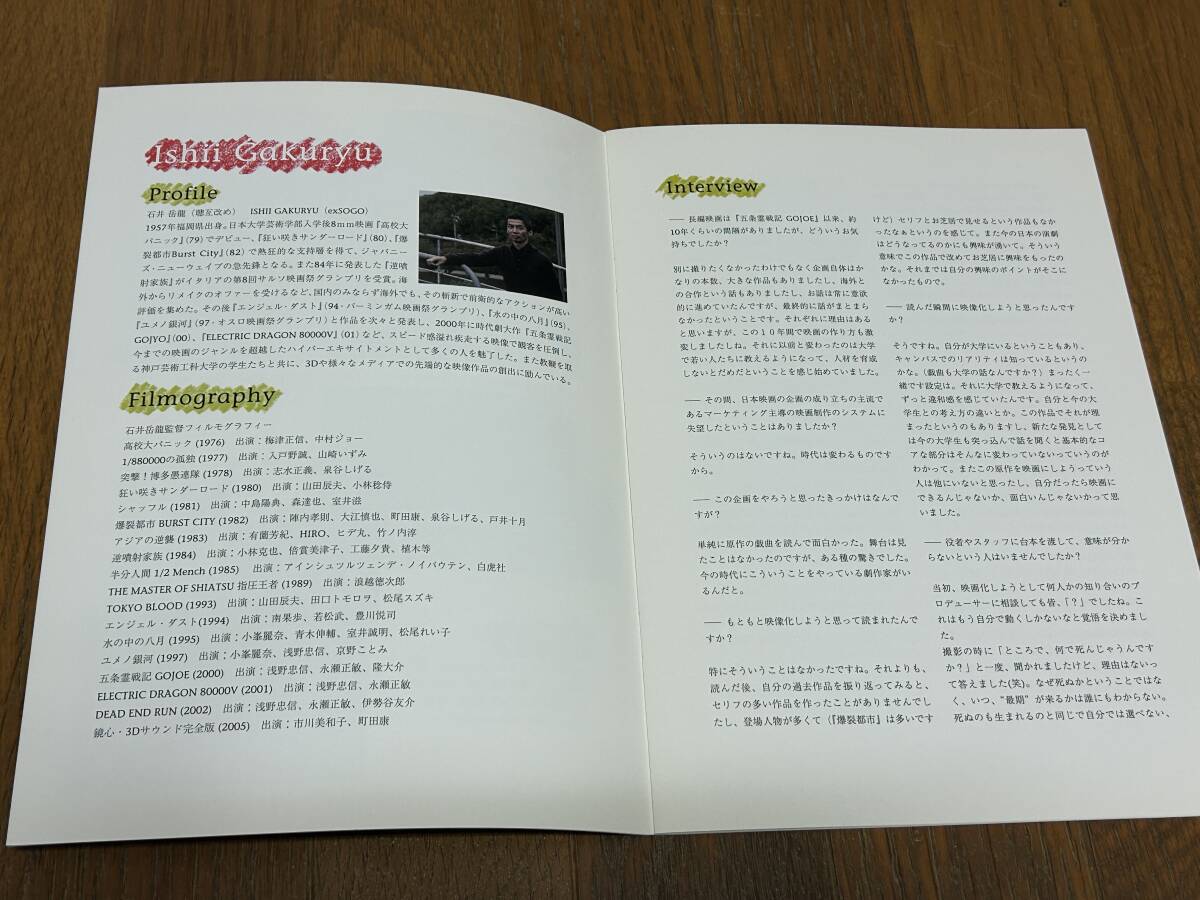 Ishii Gakuryu
Profile
石井 岳龍（聰亙改め） ISHII GAKURYU（exSOGO）
1957年福岡県出身。日本大学芸術学部入学後8mm映画『高校大
パニック』(79）でデビュー、『狂い咲きサンダーロード』(80)、『爆
裂都市Burst City』(82）で熱狂的な支持層を得て、ジャパニー
ズ・ニューウェイブの急先鋒となる。また84年に発表した『逆噴
射家族』がイタリアの第8回サルソ映画祭グランプリを受賞。海
外からリメイクのオファーを受けるなど、国内のみならず海外でも、その斬新で前衛的なアクションが高い
評価を集めた。その後『エンジェル・ダスト』(94・バーミンガム映画祭グランプリ)、『水の中の八月』(95)、
『ユメノ銀河』(97・オスロ映画祭グランプリ）と作品を次々と発表し、2000年に時代劇大作『五条霊戦記
GOJYO』(00)、『ELECTRIC DRAGON 80000V』(01）など、スピード感溢れ疾走する映像で観客を圧倒し、
今までの映画のジャンルを超越したハイパーエキサイトメントとして多くの人を魅了した。また教鞭を取
る神戸芸術工科大学の学生たちと共に、3Dや様々なメディアでの先端的な映像作品の創出に励んでいる。
Filmography
石井岳龍監督フィルモグラフィー
高校大パニック (1976) 出演：梅津正信、中村ジョー
1/880000の孤独 (1977) 出演：入戸野誠、山崎いずみ
突撃！博多愚連隊 (1978) 出演：志水正義、泉谷しげる
狂い咲きサンダーロード (1980) 出演：山田辰夫、小林稔侍
シャッフル (1981) 出演：中島陽典、森達也、室井滋
爆裂都市 BURST CITY (1982) 出演：陣内孝則、大江慎也、町田康、泉谷しげる、戸井十月
アジアの逆襲 (1983) 出演：有薗芳紀、HIRO、ヒデ丸、竹ノ内淳
逆噴射家族 (1984) 出演：小林克也、倍賞美津子、工藤夕貴、植木等
半分人間 1/2 Mench (1985) 出演：アインシュツルツェンデ・ノイバウテン、白虎社
THE MASTER OF SHIATSU 指圧王者 (1989) 出演：浪越徳次郎
TOKYO BLOOD (1993) 出演：山田辰夫、田口トモロヲ、松尾スズキ
エンジェル・ダスト(1994) 出演：南果歩、若松武、豊川悦司
水の中の八月 (1995) 出演：小峯麗奈、青木伸輔、室井誠明、松尾れい子
ユメノ銀河 (1997) 出演：小峯麗奈、浅野忠信、京野ことみ
五条霊戦記 GOJOE (2000) 出演：浅野忠信、永瀬正敏、隆大介
ELECTRIC DRAGON 80000V (2001) 出演：浅野忠信、永瀬正敏
DEAD END RUN (2002) 出演：浅野忠信、永瀬正敏、伊勢谷友介
鏡心・3Dサウンド完全版 (2005) 出演：市川美和子、町田康
Interview
―― 長編映画は『五条霊戦記 GOJOE』以来、約
10年くらいの間隔がありましたが、どういうお気
持ちでしたか？
別に撮りたくなかったわけでもなく企画自体はか
なりの本数、大きな作品もありましたし、海外と
の合作という話もありましたし、お話は常に意欲
的に進めていたんですが、最終的に話がまとまら
なかったということです。それぞれに理由はある
と思いますが、この１０年間で映画の作り方も激
変しましたしね。それに以前と変わったのは大学
で若い人たちに教えるようになって、人材を育成
しないとだめだということを感じ始めていました。
―― その間、日本映画の企画の成り立ちの主流で
あるマーケティング主導の映画制作のシステムに
失望したということはありましたか？
そういうのはないですね。時代は変わるものです
から。
―― この企画をやろうと思ったきっかけはなんで
すが？
単純に原作の戯曲を読んで面白かった。舞台は見
たことはなかったのですが、ある種の驚きでした。
今の時代にこういうことをやっている劇作家がい
るんだと。
―― もともと映像化しようと思って読まれたんで
すか？
特にそういうことはなかったですね。それよりも、
読んだ後、自分の過去作品を振り返ってみると、
セリフの多い作品を作ったことがありませんでし
たし、登場人物が多くて（『爆裂都市』は多いです
けど）セリフとお芝居で見せるという作品もなか
ったなぁというのを感じて。また今の日本の演劇
はどうなってるのかにも興味が湧いて。そういう
意味でこの作品で改めてお芝居に興味をもったの
かな。それまでは自分の興味のポイントがそこに
なかったもので。
―― 読んだ瞬間に映像化しようと思ったんです
か？
そうですね。自分が大学にいるということもあり、
キャンパスでのリアリティは知っているというの
かな。（戯曲も大学の話なんですか？）まったく一
緒です設定は。それに大学で教えるようになって、
ずっと違和感を感じていたんです。自分と今の大
学生との考え方の違いとか。この作品でそれが埋
まったというのもありますし、新たな発見として
は今の大学生も突っ込んで話を聞くと基本的なコ
アな部分はそんなに変わっていないっていうのが
わかって。またこの原作を映画にしようっていう
人は他にいないと思ったし、自分だったら映画に
できるんじゃないか、面白いんじゃないかって思
いました。
―― 役者やスタッフに台本を渡して、意味が分か
らないという人はいませんでしたか？
当初、映画化しようとして何人かの知り合いのプ
ロデューサーに相談しても皆、「？」でしたね。こ
れはもう自分で動くしかないなと覚悟を決めまし
た。
撮影の時に「ところで、何で死んじゃうんです
か？」と一度、聞かれましたけど、理由はないっ
て答えました(笑)。なぜ死ぬかということではな
く、いつ、“最期”が来るかは誰にもわからない。
死ぬのも生まれるのと同じで自分では選べない、